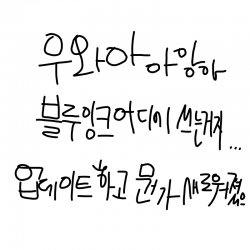 우와아아앙아
블루잉크어디에 쓰는거지...
업데이트하고 뭔가새로워졌